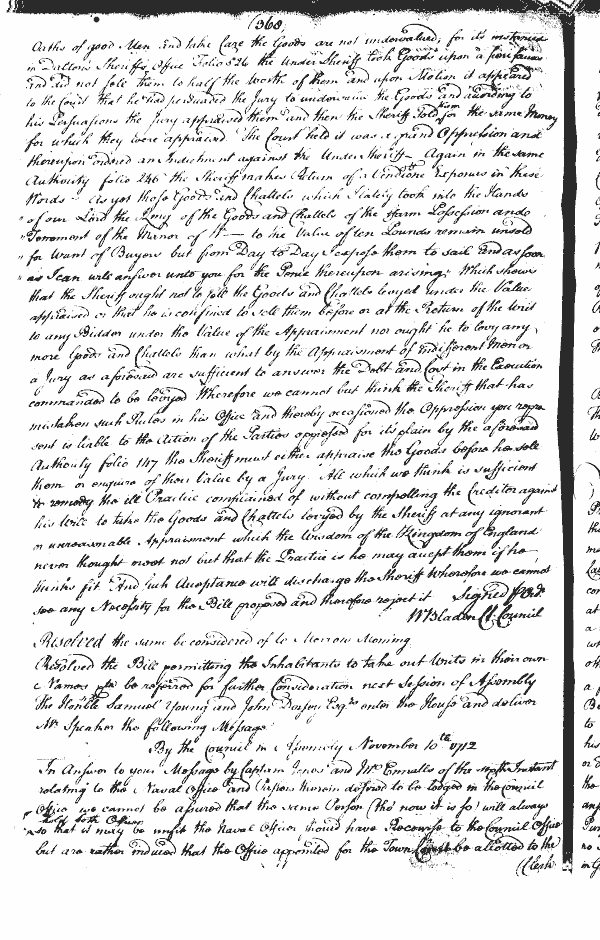 (368)
Oaths of good Men and take Care the Goods are not undervalued, for its instanced
in Daltons Sheriffs Office Folio 526 the Under Sheriff took Goods upon a fieri facias
and did not sell them to half the worth of them and upon Motion it appeared
to the Court that he had perswaded the Jury to undervalue the Goods and according to
his Perswasions the Jury appraised them and then the Sheriff sold them for the same Money
for which they were appraised The Court held it was a grand Oppression and
thereupon ordered an Indictment against the Under Sheriff Again in the same
Authority folio 246 the Sheriff makes Return of a Venditioni Exponas in these
Words As yet those Goods and Chattels which I lately took into the Hands
of our Lord the King of the Goods and Chattels of the Farm Possession and
Tenement of the Manor of to the Value of ten Pounds remain unsold
for Want of Buyers but from Day to Day I expose them to sail and as soon
as I can will answer unto you for the Penie thereupon arising: Which shows
that the Sheriff ought not to sell the Goods and Chattels levyed under the Value
appraised or that he is confined to sell them before or at the Return of the Writ
to any Bidder under the Value of the Appraisment nor ought he to levy any
more Goods and Chattels than what by the Appraisment of Indifferent Men or
a Jury as aforesaid are sufficient to answer the Debt and Cost in the Execution
commanded to be levyed Wherefore we cannot but think the Sheriff that has
mistaken such Rules in his Office and thereby occasioned the Oppression you repre
sent is liable to the Action of the Parties oppressed for its plain by the aforesaid
Authority folio 147 the Sheriff must either appraise the Goods before he sell
them or enquire of their Value by a Jury All which we think is sufficient
to remedy the ill Practice complained of without compelling the Creditor against
his Will to take the Goods and Chattels levyed by the Sheriff at any ignorant
or unreasonable Appraisment which the Wisdom of the Kingdom of England
never thought meet not but that the Practice is he may accept them if he
thinks fit And such Acceptance will discharge the Sheriff Wherefore we cannot
see any Necessity for the Bill proposed and therefore reject it Signed p Ord.
W Bladen Cl. Council
Resolved the same be considered of to Morrow Morning
Resolved the Bill permitting the Inhabitants to take out Writs in their own
Names be referred for further Consideration next Session of Assembly
The Honble Samuel Young and John Esqrs enter the House and deliver
Mr Speaker the following Message
By the Council in Assembly November 10th 1712
In Answer to your Message by Captain Jones and Mr Ennalls of the Instant
relating to the Naval Office and Papers therein desired to be lodged in the Council
Office we cannot be assured that the same Person (tho now it is so) will always
both Offices
so that it may be unfit the Naval Officer should have Recourse to the Council Office
but are rather induced that the Office appointed for the Town be allotted to the
(Clerk